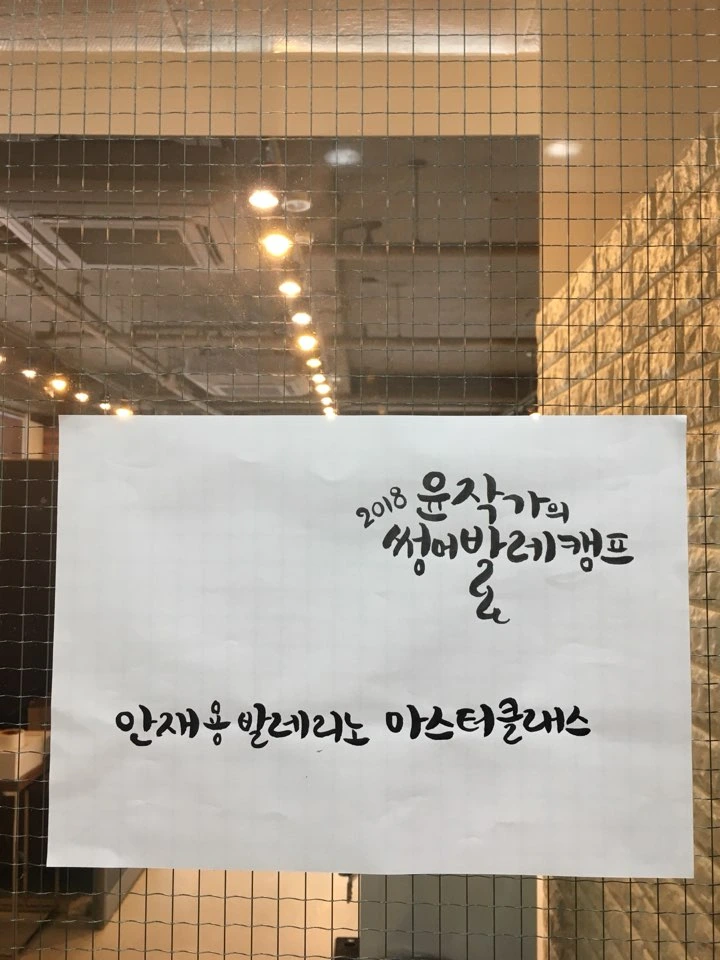 2018 윤작가의
썽머발레캠프
안재용 발레리노 마스터클래스